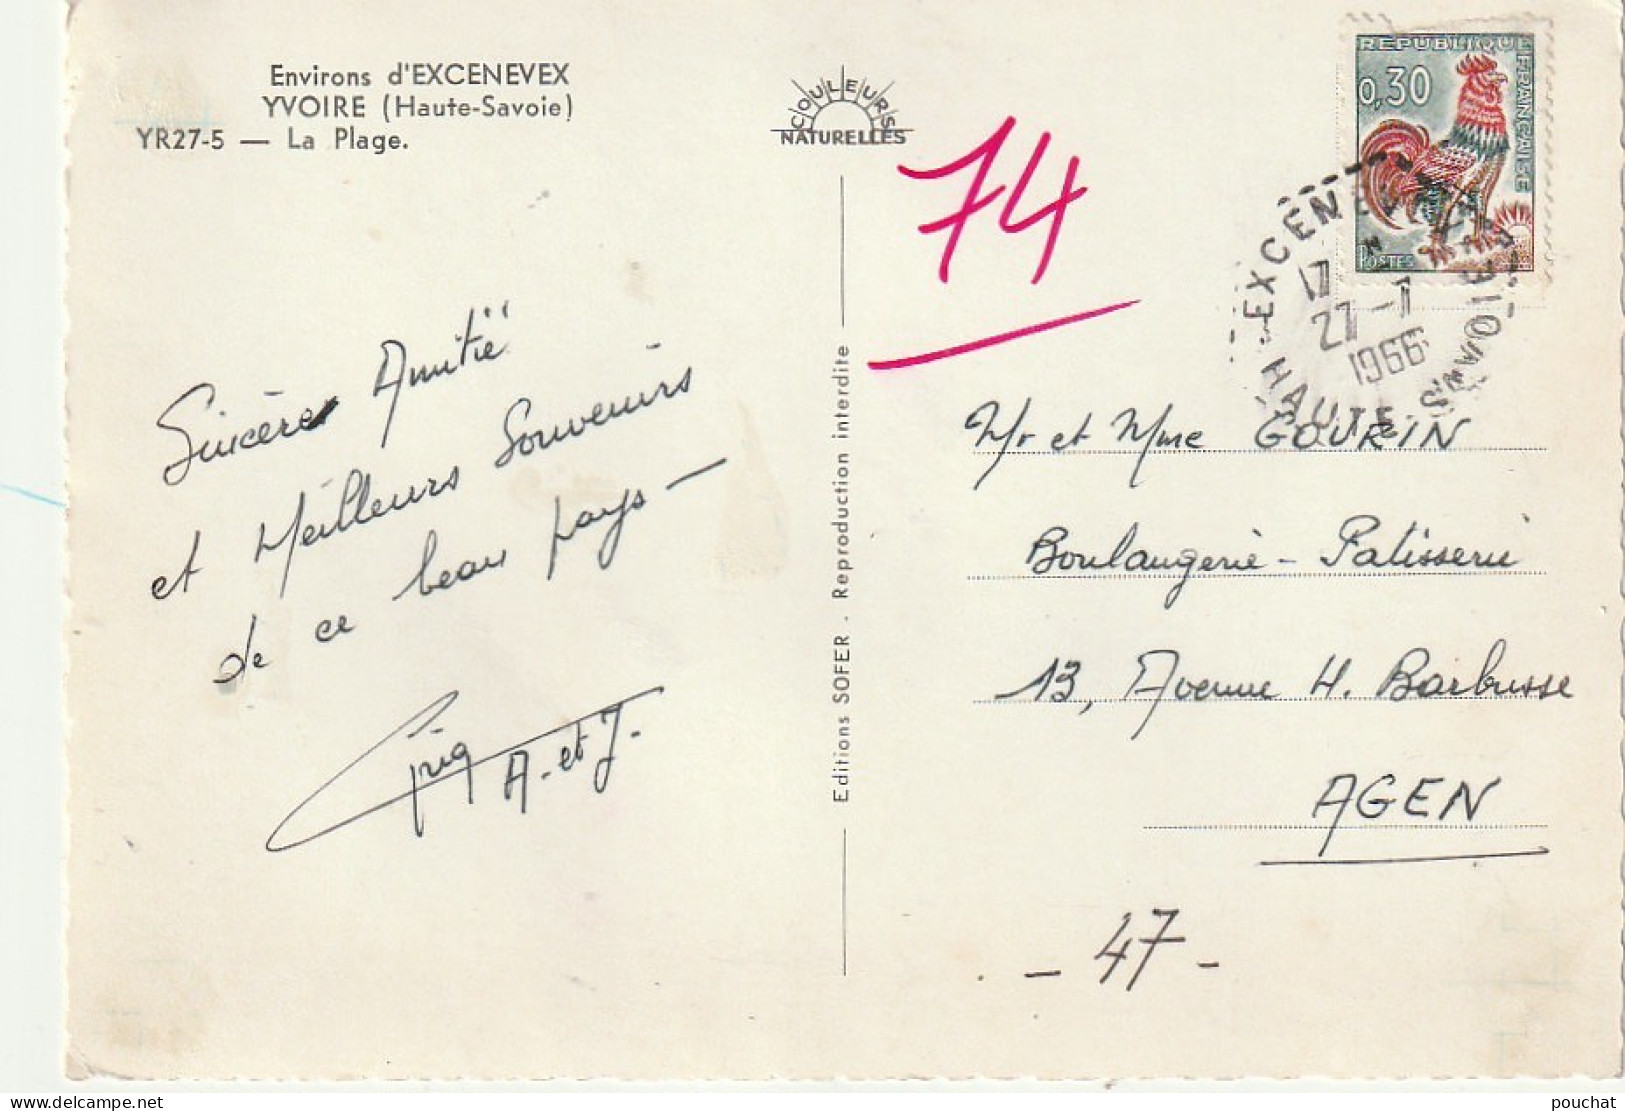 Environs d'EXCENEVEX
YVOIRE (Haute-Savoie)
YR27-5 — La Plage.
COULEURS
NATURELLES
74
REPUBLIQUE FRANÇAISE
0,30
POSTES
EXCENEVEX
17
27 -7
1966
HAUTE
Sincère Amitié
et Meilleurs Souvenirs
de ce beau pays —
A. et J.
Editions SOFER . Reproduction interdite
Mr et Mme GOURIN
Boulangerie - Patisserie
13, Avenue H. Barbusse
AGEN
- 47 -
pouchat